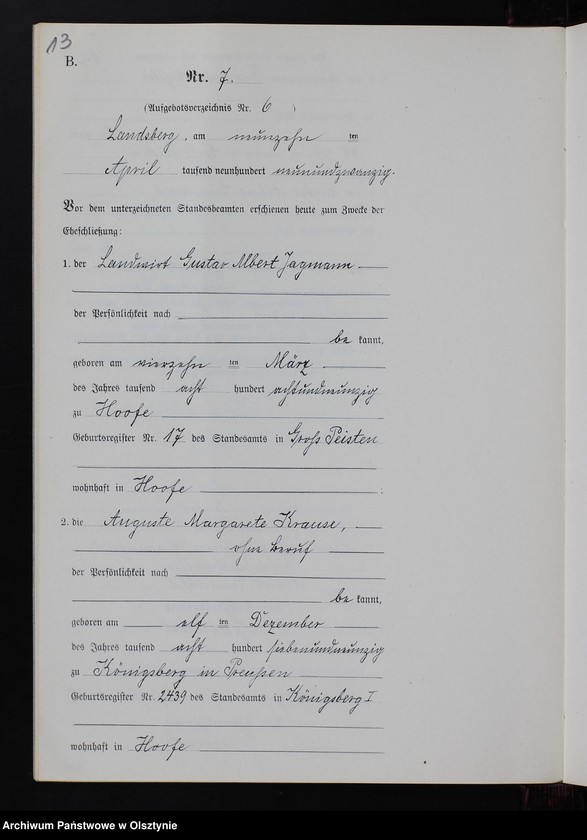 13
B.
Nr. 7.
(Aufgebotsverzeichnis Nr. 6 )
Landsberg, am neunzehn ten
April tausend neunhundert neunundzwanzig.
Vor dem unterzeichneten Standesbeamten erschienen heute zum Zwecke der
Eheschließung:
1. der Landwirt Gustav Albert Jagmann
der Persönlichkeit nach
be kannt,
geboren am vierzehn ten März
des Jahres tausend acht hundert achtundneunzig
zu Hoofe
Geburtsregister Nr. 17 des Standesamts in Groß Peisten
wohnhaft in Hoofe ;
2. die Auguste Margarete Krause,
ohne Beruf
der Persönlichkeit nach
be kannt,
geboren am elf ten Dezember
des Jahres tausend acht hundert siebenundneunzig
zu Königsberg in Preußen
Geburtsregister Nr. 2439 des Standesamts in Königsberg I
wohnhaft in Hoofe
Archiwum Państwowe w Olsztynie